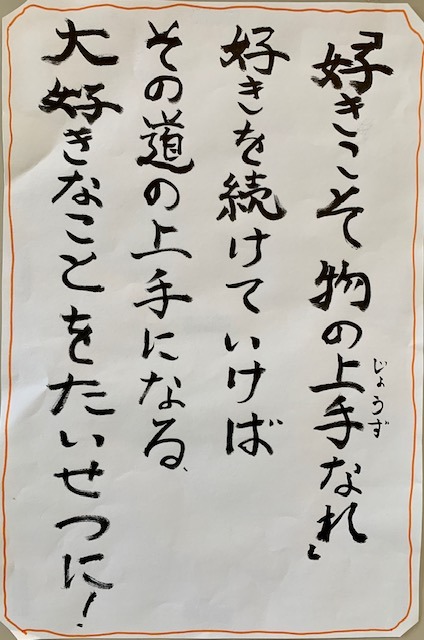 「好きこそ物の上手なれ」
じょうず
好きを続けていけば
その道の上手になる、
大好きなことをたいせつに！